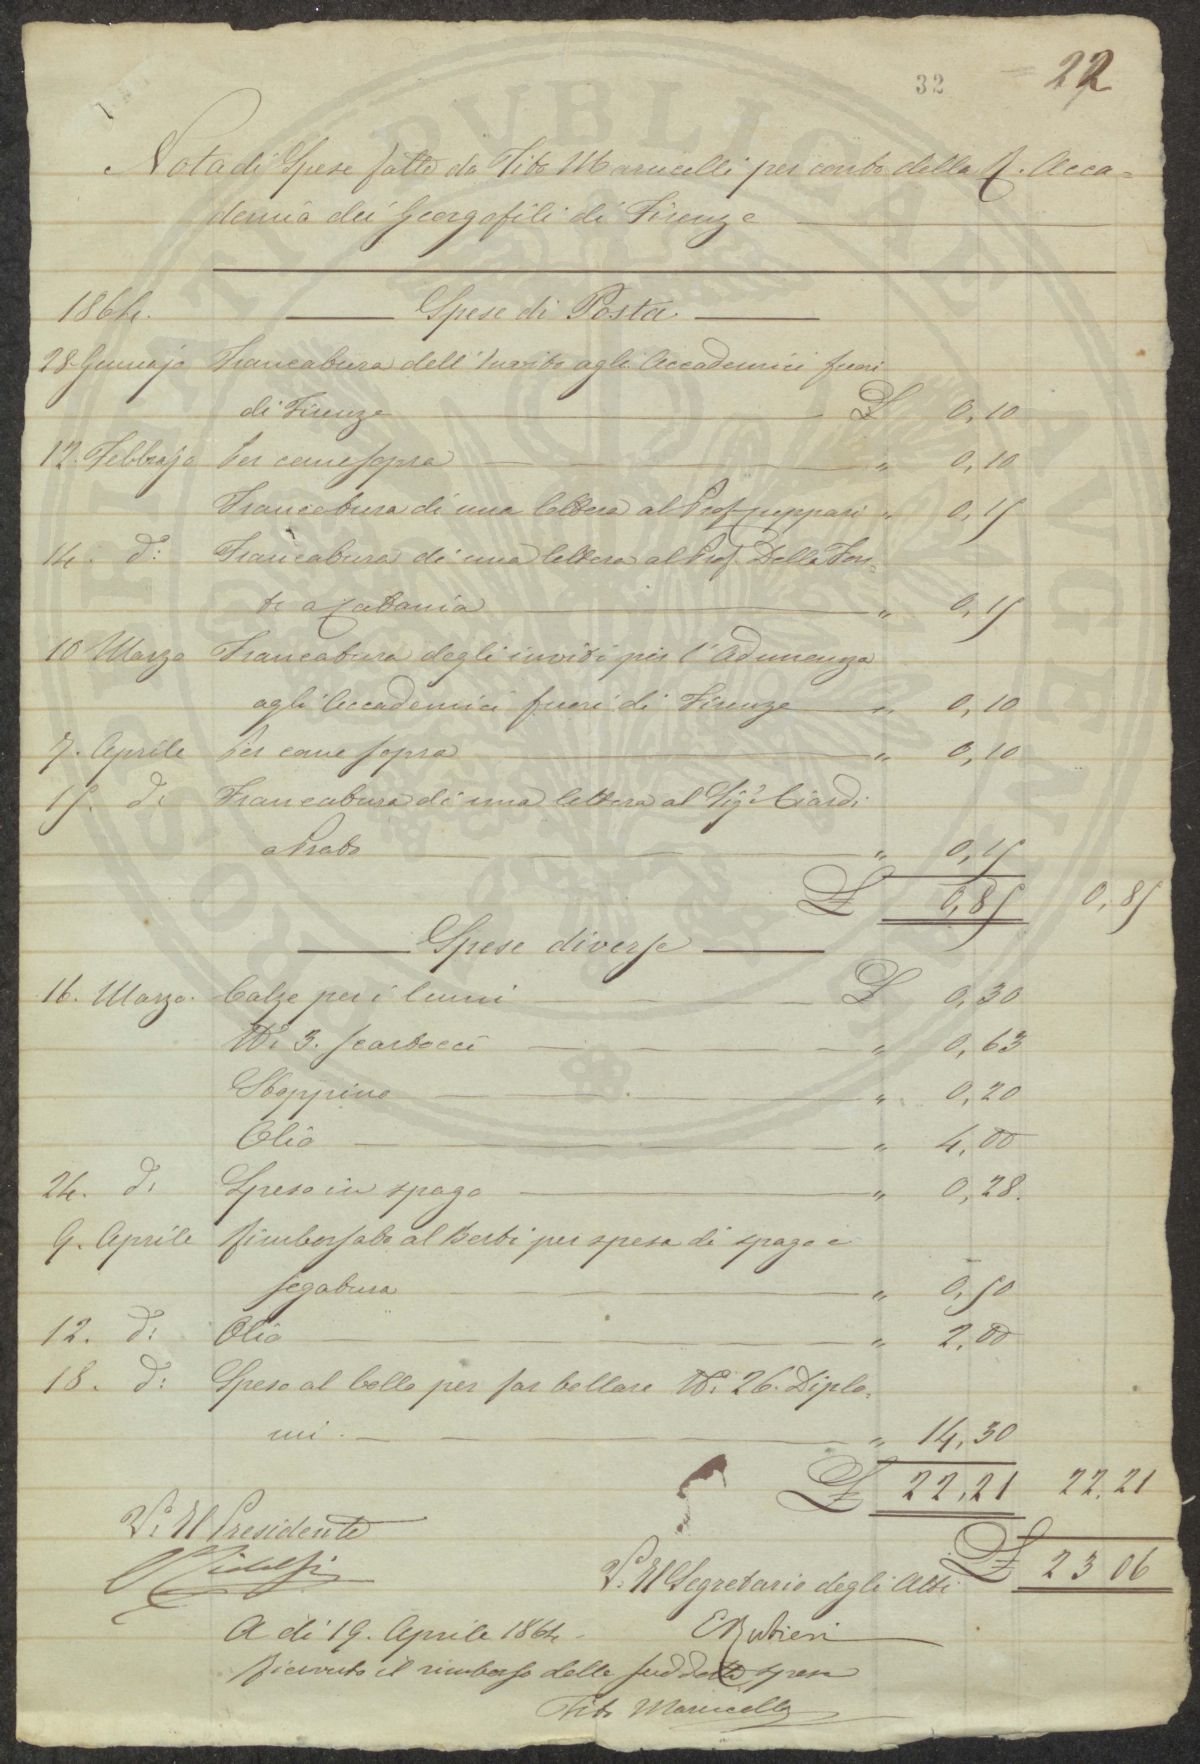 32 22
Nota di Spese fatte da Tito Marucelli per conto della R. Acca=
demia dei Georgofili di Firenze
1864. Spese di Posta
28 Gennajo Francatura dell'Invito agli Accademici fuori
di Firenze £ 0,10
12. Febbrajo Per come sopra " 0,10
Francatura di una lettera al Prof. " 0,15
14. d: Francatura di una lettera al Prof. Della Fon=
te a Catania " 0,15
10 Marzo Francatura degli inviti per l'Adunanza
agli Accademici fuori di Firenze " 0,10
7. Aprile Per come sopra " 0,10
15. d: Francatura di una lettera al Sigr. Ciardi
a Prato " 0,15
£ 0,85 0,85
Spese diverse
16. Marzo. Calze per i lumi £ 0,30
N: 3. scartocci " 0,63
Stoppino " 0,20
Olio " 4,00
24. d: Speso in spago " 0,28.
9. Aprile Rimborsato al Berti per spesa di spago e
segatura " 0,50
12. d: Olio " 2,00
18. d: Speso al bollo per far bollare N: 26. Diplo=
mi " 14,30
£ 22,21 22.21
£ 23 06
V: Il Presidente
Ridolfi
V: Il Segretario degli Atti
E Rubieri
A dì 19. Aprile 1864.
Ricevuto il rimborso delle suddette spese
Tito Marucelli
POSTERITATI PVBLICAE AVGENDAE